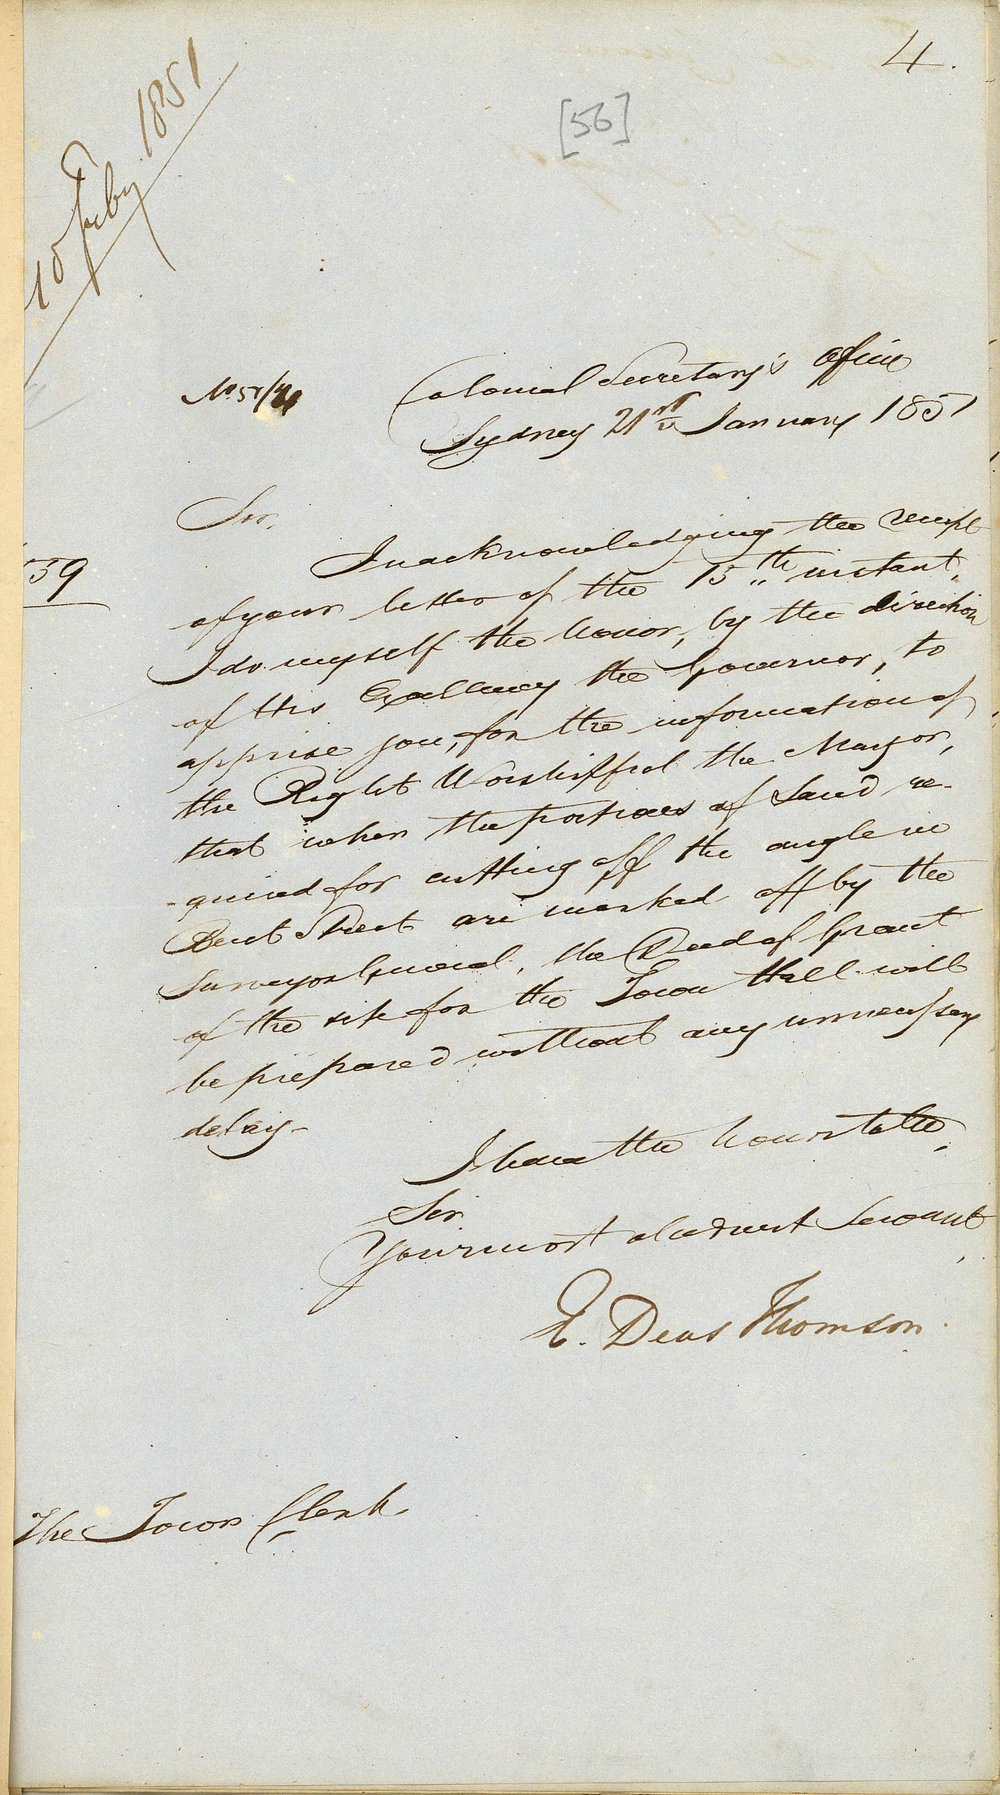 4.
[56]
10 Feby 1851
No 51/
Colonial Secretary's Office
Sydney 21st January 1851
Sir,
59
In acknowledging the receipt
of your letter of the 15th instant,
I do myself the honor, by the direction
of His Excellency the Governor, to
apprise you, for the information of
the Right Worshipful the Mayor,
that when the portions of Land re-
-quired for cutting off the angle in
Bent Street are marked off by the
Surveyor General, the Deed of Grant
of the site for the Town Hall will
be prepared without any unnecessary
delay.
I have the honor to be,
Sir
Your most obedient Servant,
E. Deas Thomson.
The Town Clerk.